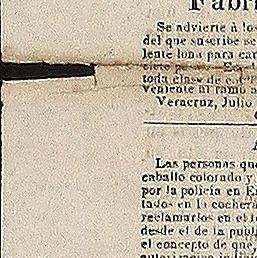 Fabri
Se advierte á los
del que suscribe se
lente lona para car
toda clase de
veniente al ramo
Veracruz, Julio
Las personas que
caballo colorado y
por la policía en
tados en la cochera
reclamarlos en el
desde el de la publ
el concepto de que